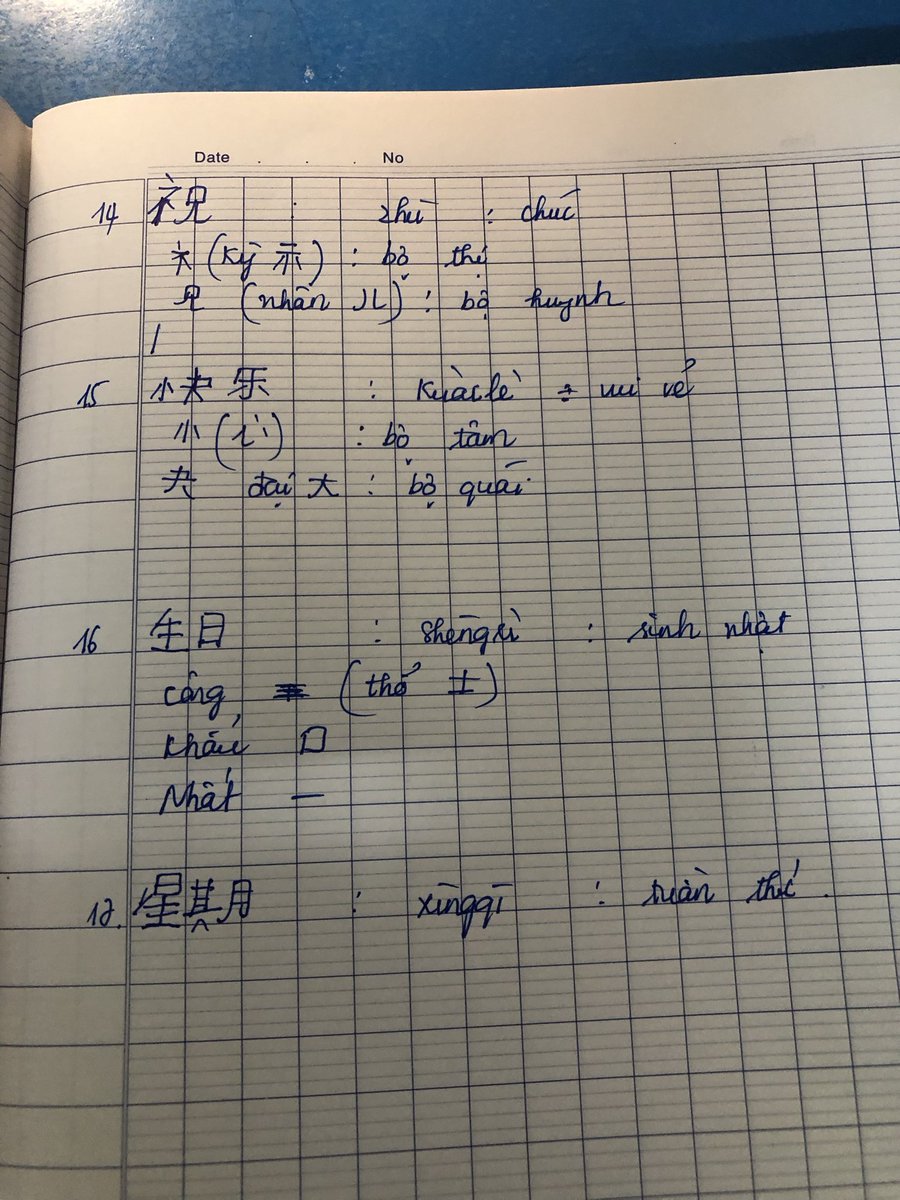 Date . . . No
14 祝 : zhù : chúc
礻(kỳ 示) : bộ thị
兄 (nhân 儿) : bộ huynh
15 快乐 : kuàilè ÷ vui vẻ
忄() : bộ tâm
夬 đại 大 : bộ quái
16 生日 : shēngrì : sinh nhật
công (thổ 土)
khẩu 口
Nhất 一
17. 星期 : xīngqī : tuần thứ.